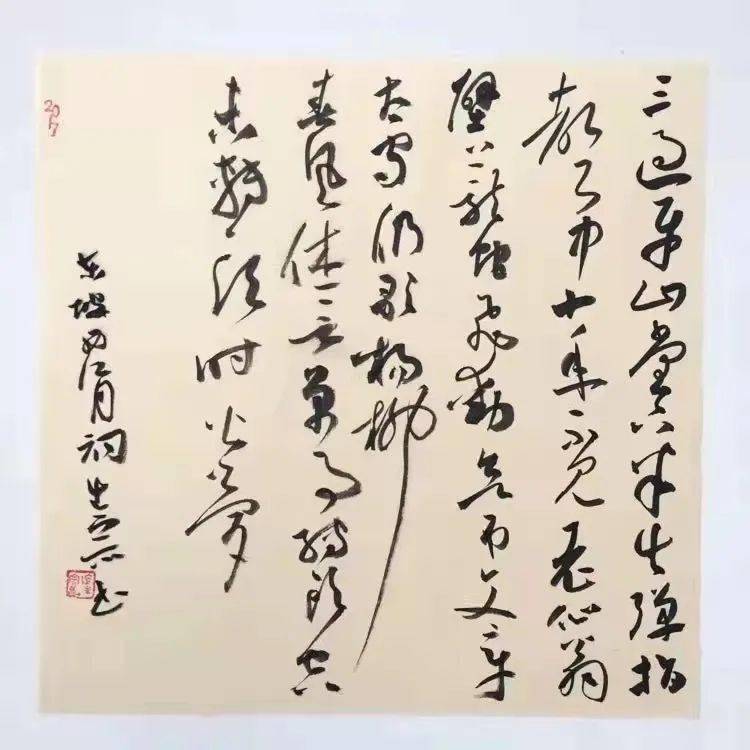 三過平山堂下半生彈指
聲中十年不見老仙翁
壁上龍蛇飛動欲弔文章
太守仍歌楊柳
春風休言萬事轉頭空
未轉頭時皆夢
東坡西江月詞 書
2017